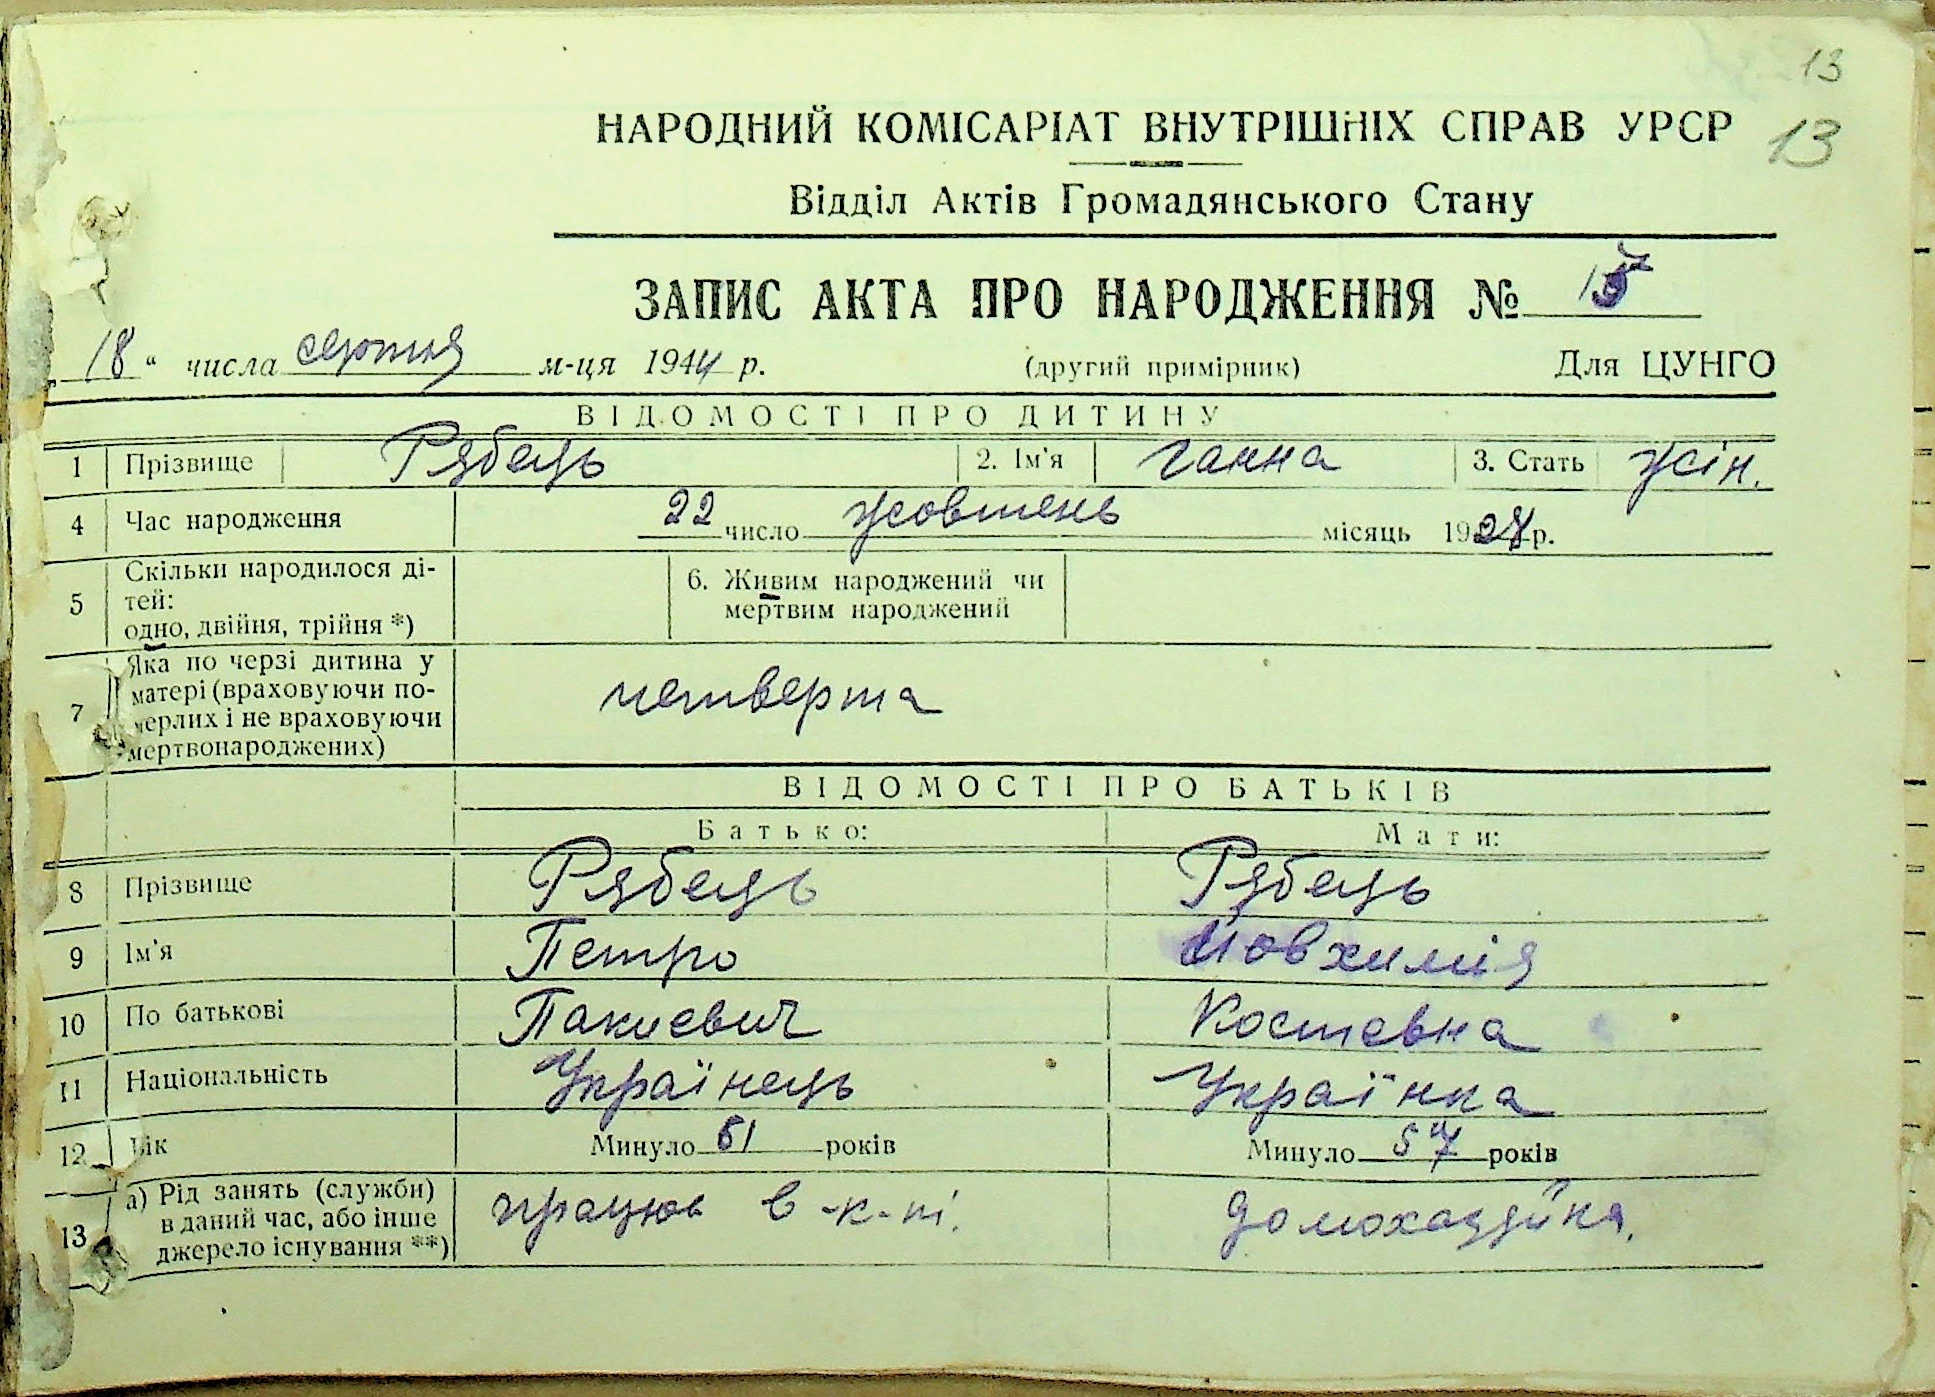 13
НАРОДНИЙ КОМІСАРІАТ ВНУТРІШНІХ СПРАВ УРСР 13
Відділ Актів Громадянського Стану
ЗАПИС АКТА ПРО НАРОДЖЕННЯ № 15
„18“ числа серпня м-ця 1944 р. (другий примірник) Для ЦУНГО
ВІДОМОСТІ ПРО ДИТИНУ
1 Прізвище Рябець 2. Ім'я Ганна 3. Стать жін.
4 Час народження 22 число жовтень місяць 1928 р.
5 Скільки народилося ді-
тей:
одно, двійня, трійня *)
6. Живим народжений чи
мертвим народжений
7 Яка по черзі дитина у
матері (враховуючи по-
мерлих і не враховуючи
мертвонароджених)
четверта
ВІДОМОСТІ ПРО БАТЬКІВ
Батько: Мати:
8 Прізвище Рябець Рябець
9 Ім'я Петро Йовхимія
10 По батькові Костевна
11 Національність Українець Українка
12 Вік Минуло 61 років Минуло 57 років
13 а) Рід занять (служби)
в даний час, або інше
джерело існування **)
працює в к-пі. домохазяйка.